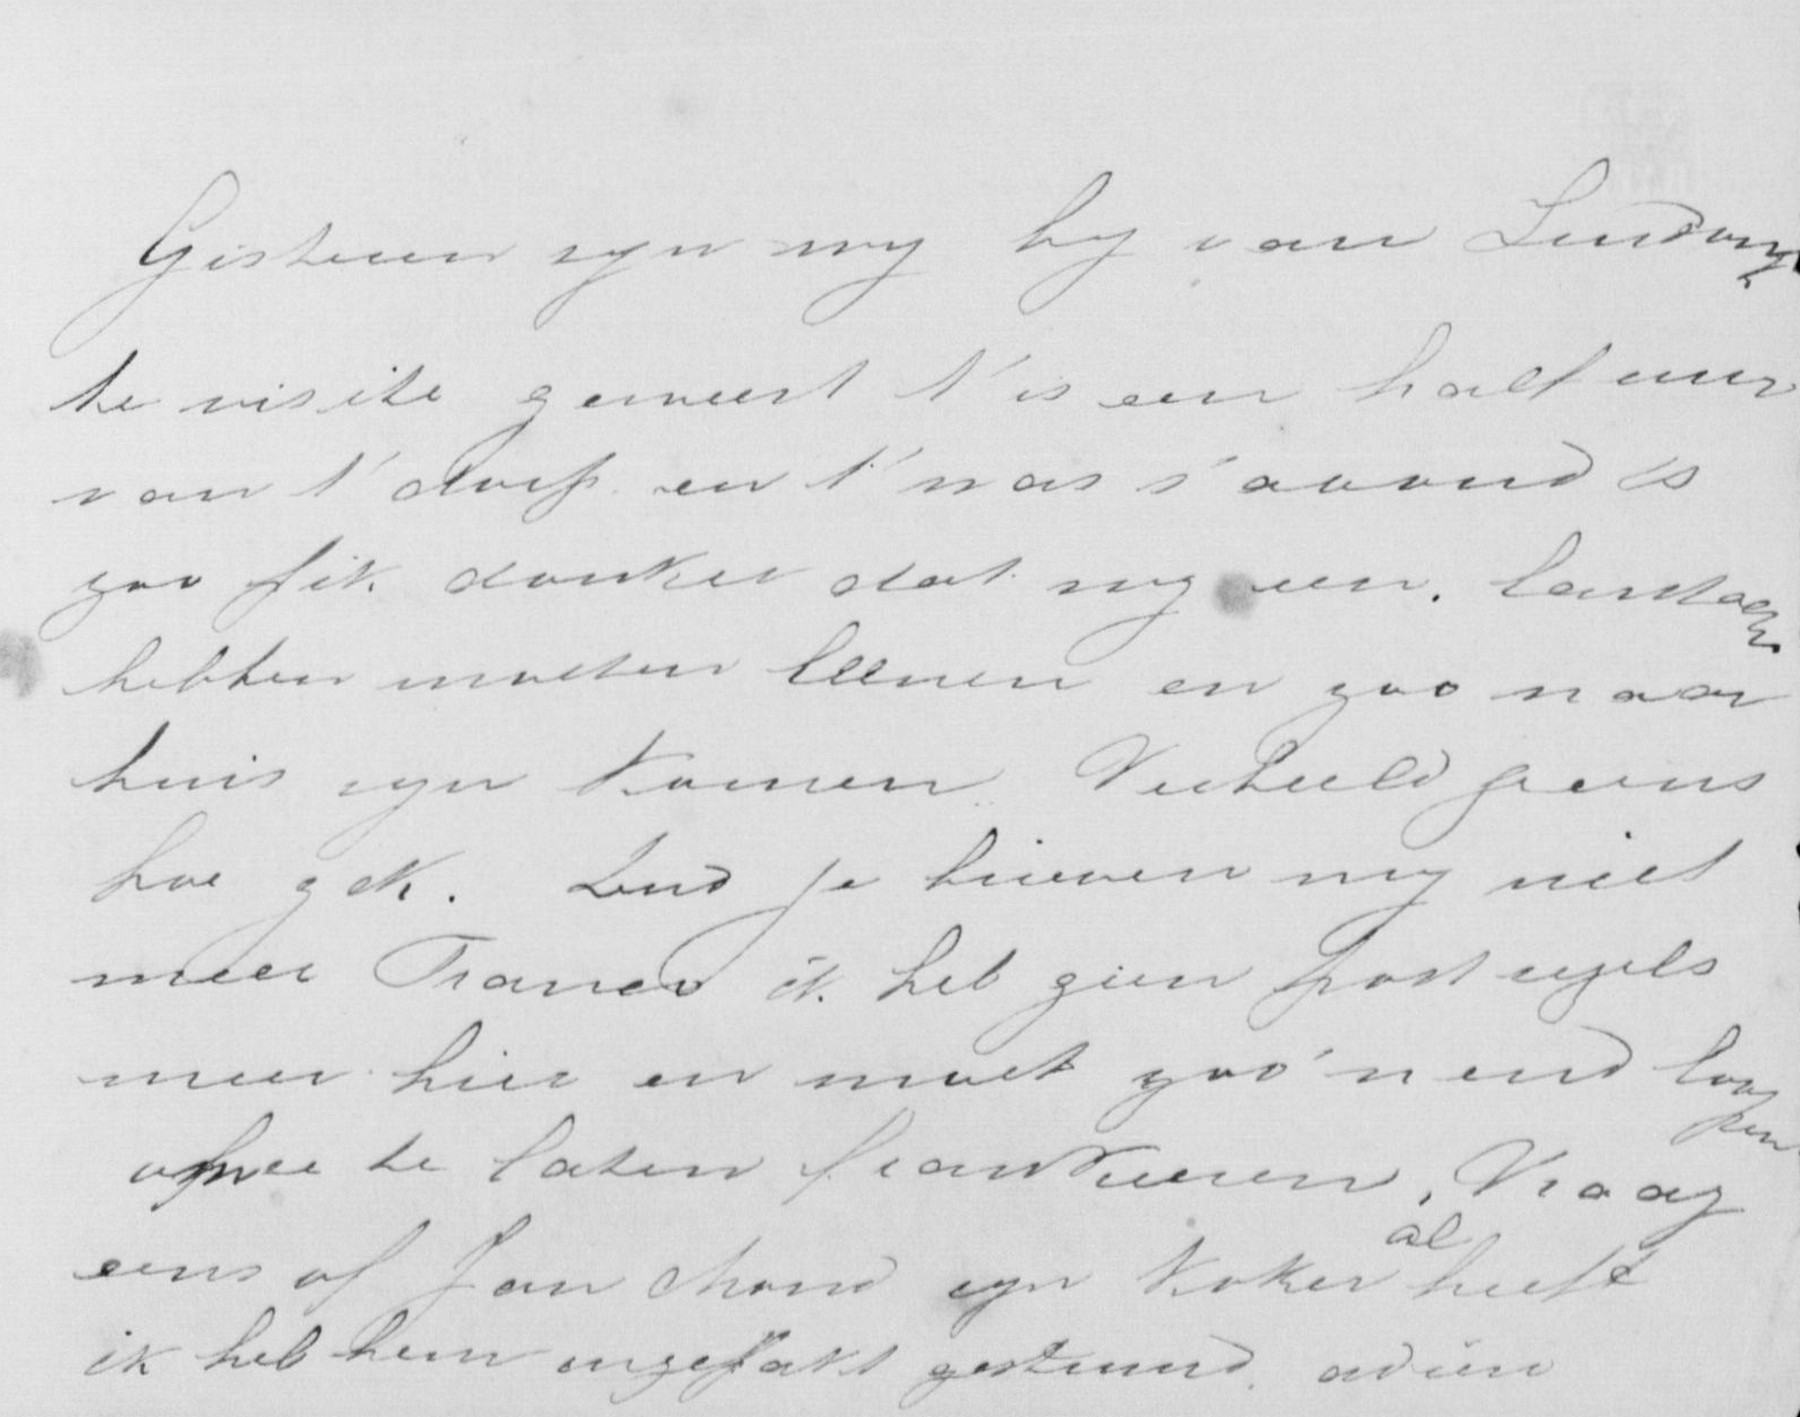 Gisteren zyn wy by van Lindong
te visite geweest t'is een half uur
van t'dorp en t'was s'avond is
zoo pik donker dat wy een lantaarn
hebben moeten lleenen en zoo naar
huis zyn komen Verbeeld je eens
hoe gek. Zend je brieven my niet
meer Franco ik heb geen post zegels
meer hier en moet zoo'n end loo
pen
om ze te laten frankeeren, Vraag
al
eens of Jan Mond zyn koker heeft
ik heb hem ongepakt gestuurd. adieu